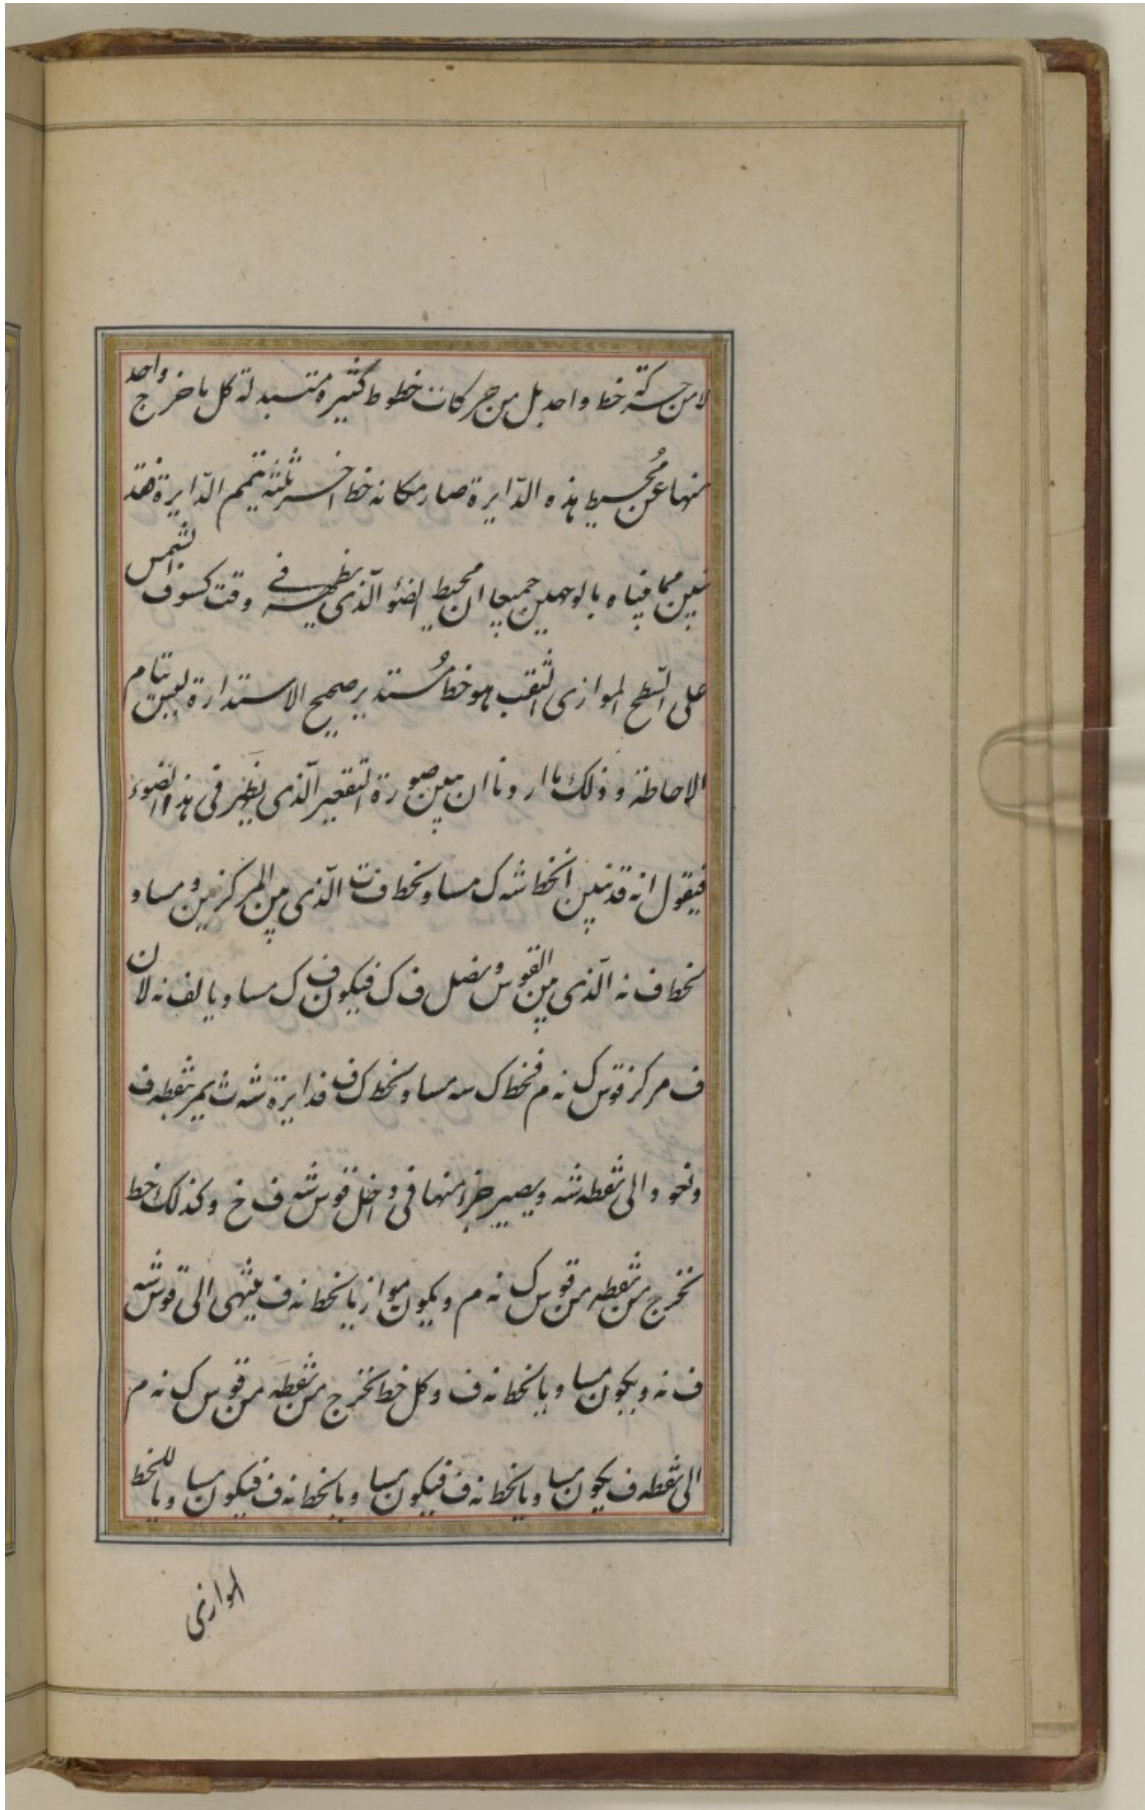 لا من حركة خط واحد بل من حركات خطوط كثيرة متبدلة كل ما خرج واحد
منها عن مُحيط هذه الدّايرة صار مكانه خط اخر يتمم الدّايرة فقد
تبين مما بيناه بالوجهين جميعا ان محيط الضوء الّذى يظهر فى وقت كسوف الشمس
على السّطح الموازى للثقب هو خط مُستدير صحيح الاستدارة ليس بتام
الاحاطة وذلك ما اردنا ان نبين صورة التّقعير الّذى يظهر فى هذا الضوء
فيقول انه قد تبين ان خط شه ك مساو لخط ف ت الّذى بين المركزين ومساو
لخط ف نه الّذى بين القوس وفصل ف ك فيكون ف ك مساويا لف نه لان
ف مركز قوس ك نه م فخط ك سه مساو لخط ك ف فدايرة شه ث يمر بنقطه ف
ونحوه الى نقطه شه ويصير جزء منها فى داخل قوس شه ف خ وكذلك خط
يخرج من نقطه من قوس ك نه م ويكون موازيا لخط نه ف ينتهى الى قوس شه
ف نه ويكون مساويا لخط نه ف وكل خط يخرج من نقطه من قوس ك نه م
الى نقطه ف يكون مساويا لخط نه ف فيكون مساويا لخط نه ف فيكون مساويا للخط
الموازى